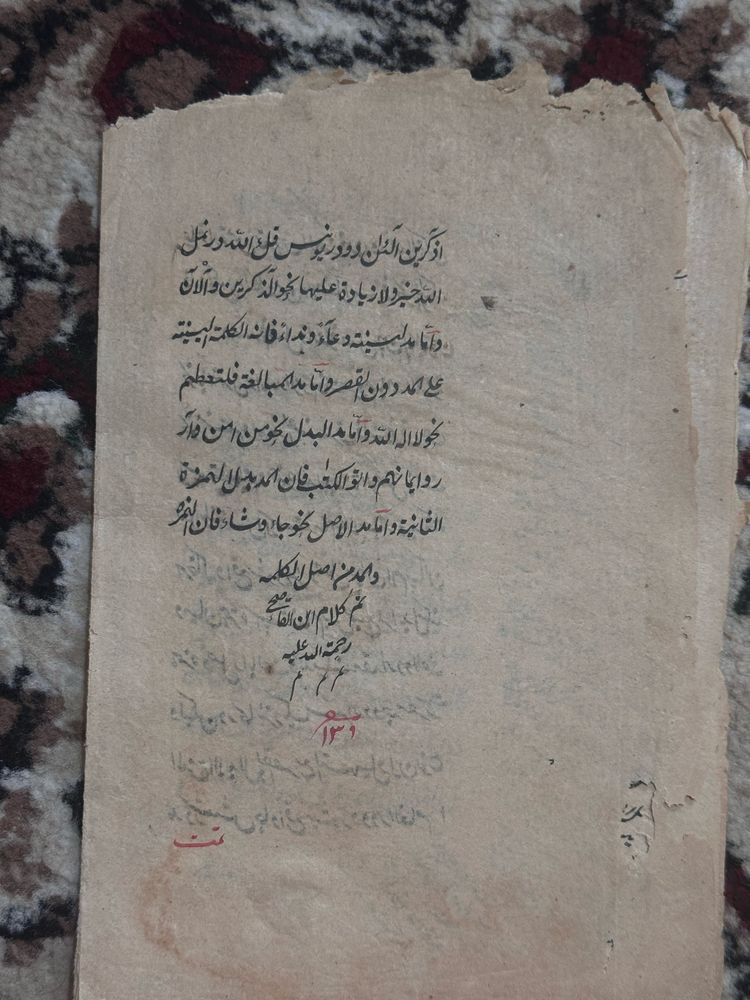 اذكرين آلئن دو در يونس قل الله در نمل
الله خير ولا زيادة عليها نحو آلذكرين و آلآن
و اما مد لسينه دعاء و نداء فانه الكلمة البينته
على المد دون القصر و اما مد المبالغة فلتعظيم
نحو لا اله الله و اما مد البدل نحو من امن و آز
روايمانهم و اتو الكتب فان المد بدل الهمزة
الثانية و اما مد الاصل نحو جاء و شاء فان الهمزه
والمد من اصل الكلمه
تم كلام ابن القاصح
رحمة الله عليه
م م م
تمت